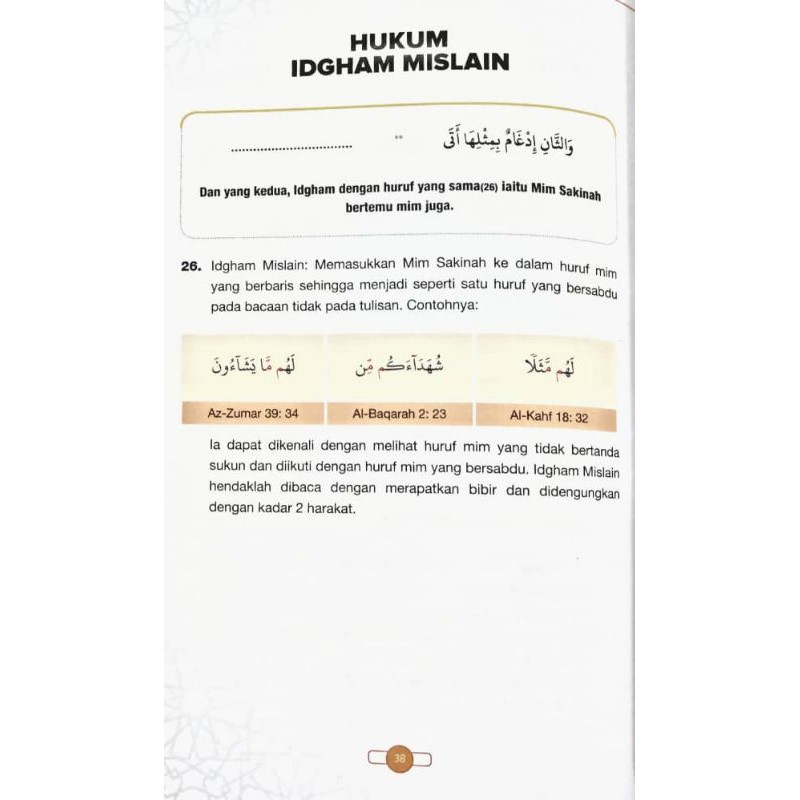 HUKUM
IDGHAM MISLAIN
وَالثَّانِ إِدْغَامٌ بِمِثْلِهَا أَتَى ** ..................................
Dan yang kedua, Idgham dengan huruf yang sama(26) iaitu Mim Sakinah
bertemu mim juga.
26. Idgham Mislain: Memasukkan Mim Sakinah ke dalam huruf mim
yang berbaris sehingga menjadi seperti satu huruf yang bersabdu
pada bacaan tidak pada tulisan. Contohnya:
لَهُم مَّثَلًا شُهَدَآءَكُم مِّن لَهُم مَّا يَشَآءُونَ
Az-Zumar 39: 34 Al-Baqarah 2: 23 Al-Kahf 18: 32
Ia dapat dikenali dengan melihat huruf mim yang tidak bertanda
sukun dan diikuti dengan huruf mim yang bersabdu. Idgham Mislain
hendaklah dibaca dengan merapatkan bibir dan didengungkan
dengan kadar 2 harakat.
38